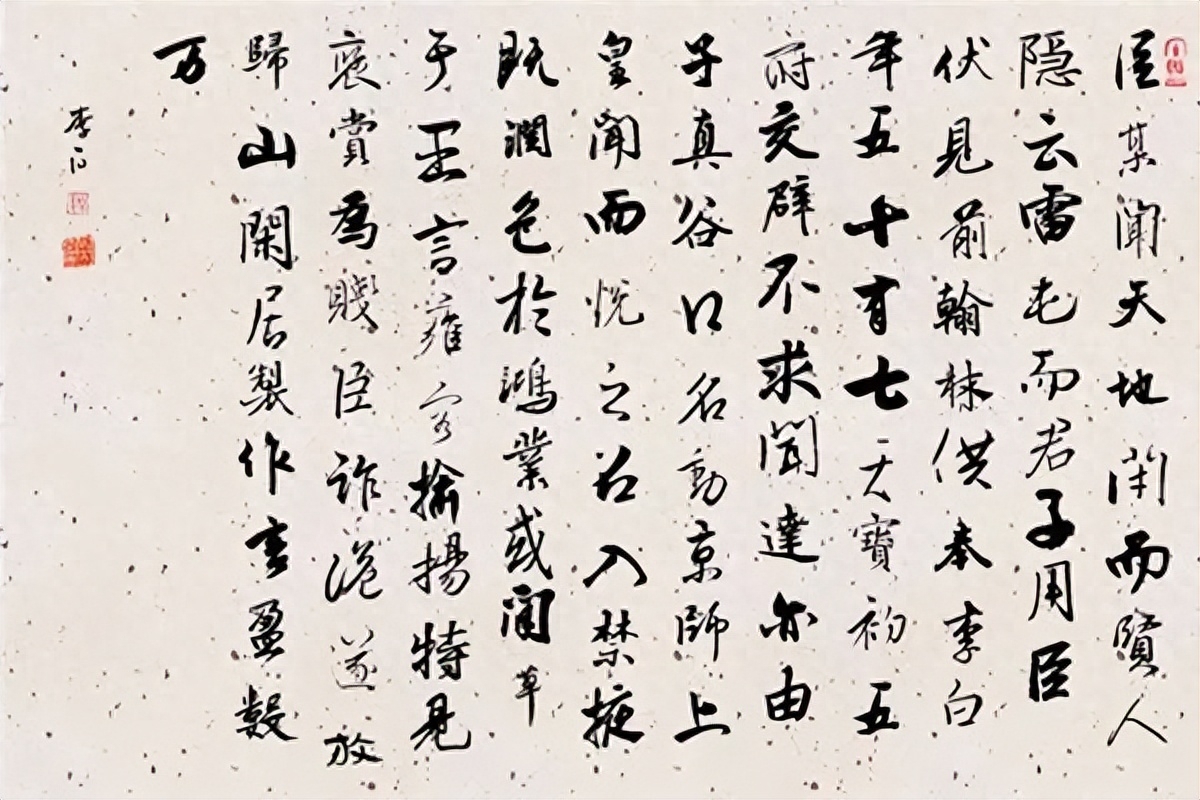 臣某聞天地閉而賢人
隐云雷屯而君子用臣
伏見前翰林供奉李白
年五十有七天寶初五
府交辟不求聞達亦由
子真谷口名動京師上
皇聞而悦之召入禁掖
既潤色於鴻業或間草
于王言雍容揄揚特見
褒賞為賤臣詐詭遂放
歸山閑居製作言盈數
万
李